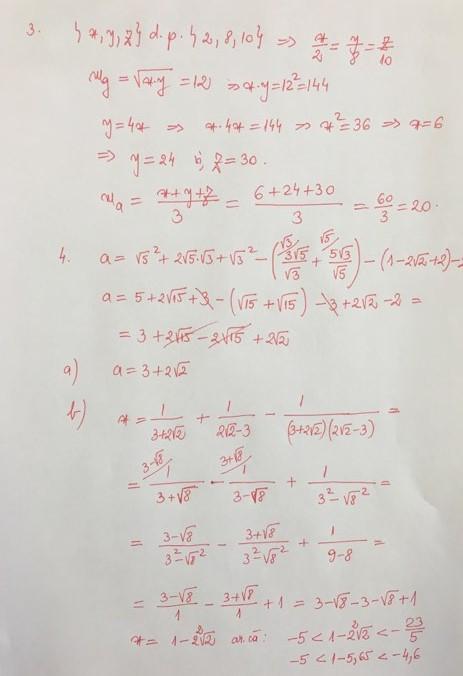 3. {x, y, z} d.p. {2, 8, 10} ⇒ x/2 = y/8 = z/10
mg = √(x·y) = 12 ⇒ x·y = 12² = 144
y = 4x ⇒ x·4x = 144 ⇒ x² = 36 ⇒ x = 6
⇒ y = 24 și z = 30.
ma = (x+y+z)/3 = (6+24+30)/3 = 60/3 = 20.
4. a = √5² + 2√5·√3 + √3² - (√3)3√5/√3 + √5)5√3/√5) - (1-2√2+2) -2
a = 5 + 2√15 + 3 - (√15 + √15) - 3 + 2√2 - 2 =
= 3 + 2√15 - 2√15 + 2√2
a) a = 3 + 2√2
b) x = 1/(3+2√2) + 1/(2√2-3) - 1/((3+2√2)(2√2-3)) =
= 3-√8) 1/(3+√8) - 3+√8) 1/(3-√8) + 1/(3²-√8²) =
= (3-√8)/(3²-√8²) - (3+√8)/(3²-√8²) + 1/(9-8) =
= (3-√8)/1 - (3+√8)/1 + 1 = 3-√8-3-√8+1
x = 1-2·2√2 ar. că: -5 < 1-2·2√2 < -23/5
-5 < 1-5,65 < -4,6